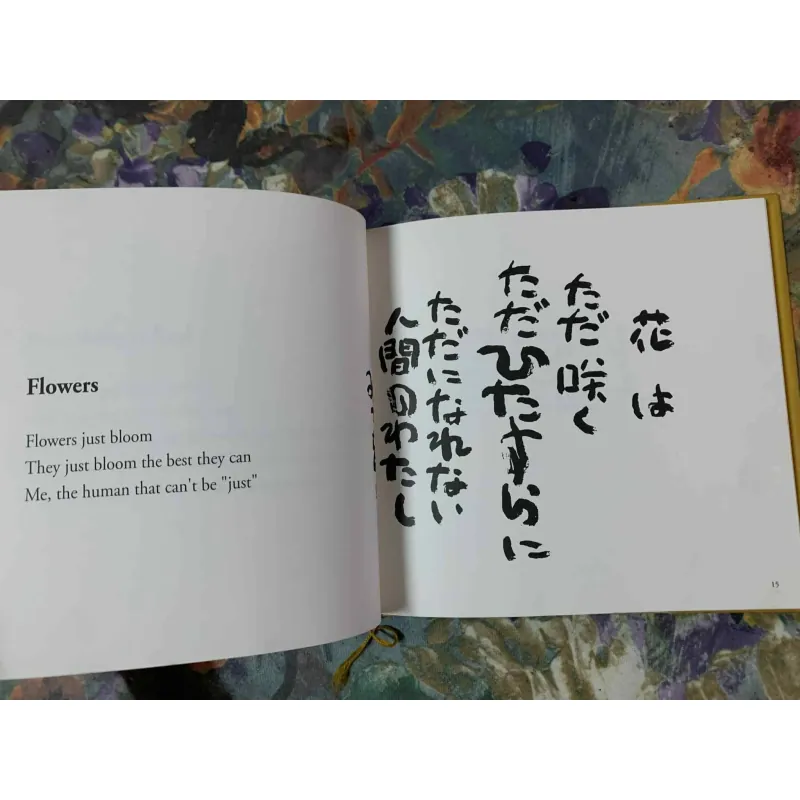 Flowers
Flowers just bloom
They just bloom the best they can
Me, the human that can't be "just"
花は
ただ咲く
ただひたすらに
ただになれない
人間のわたし
15